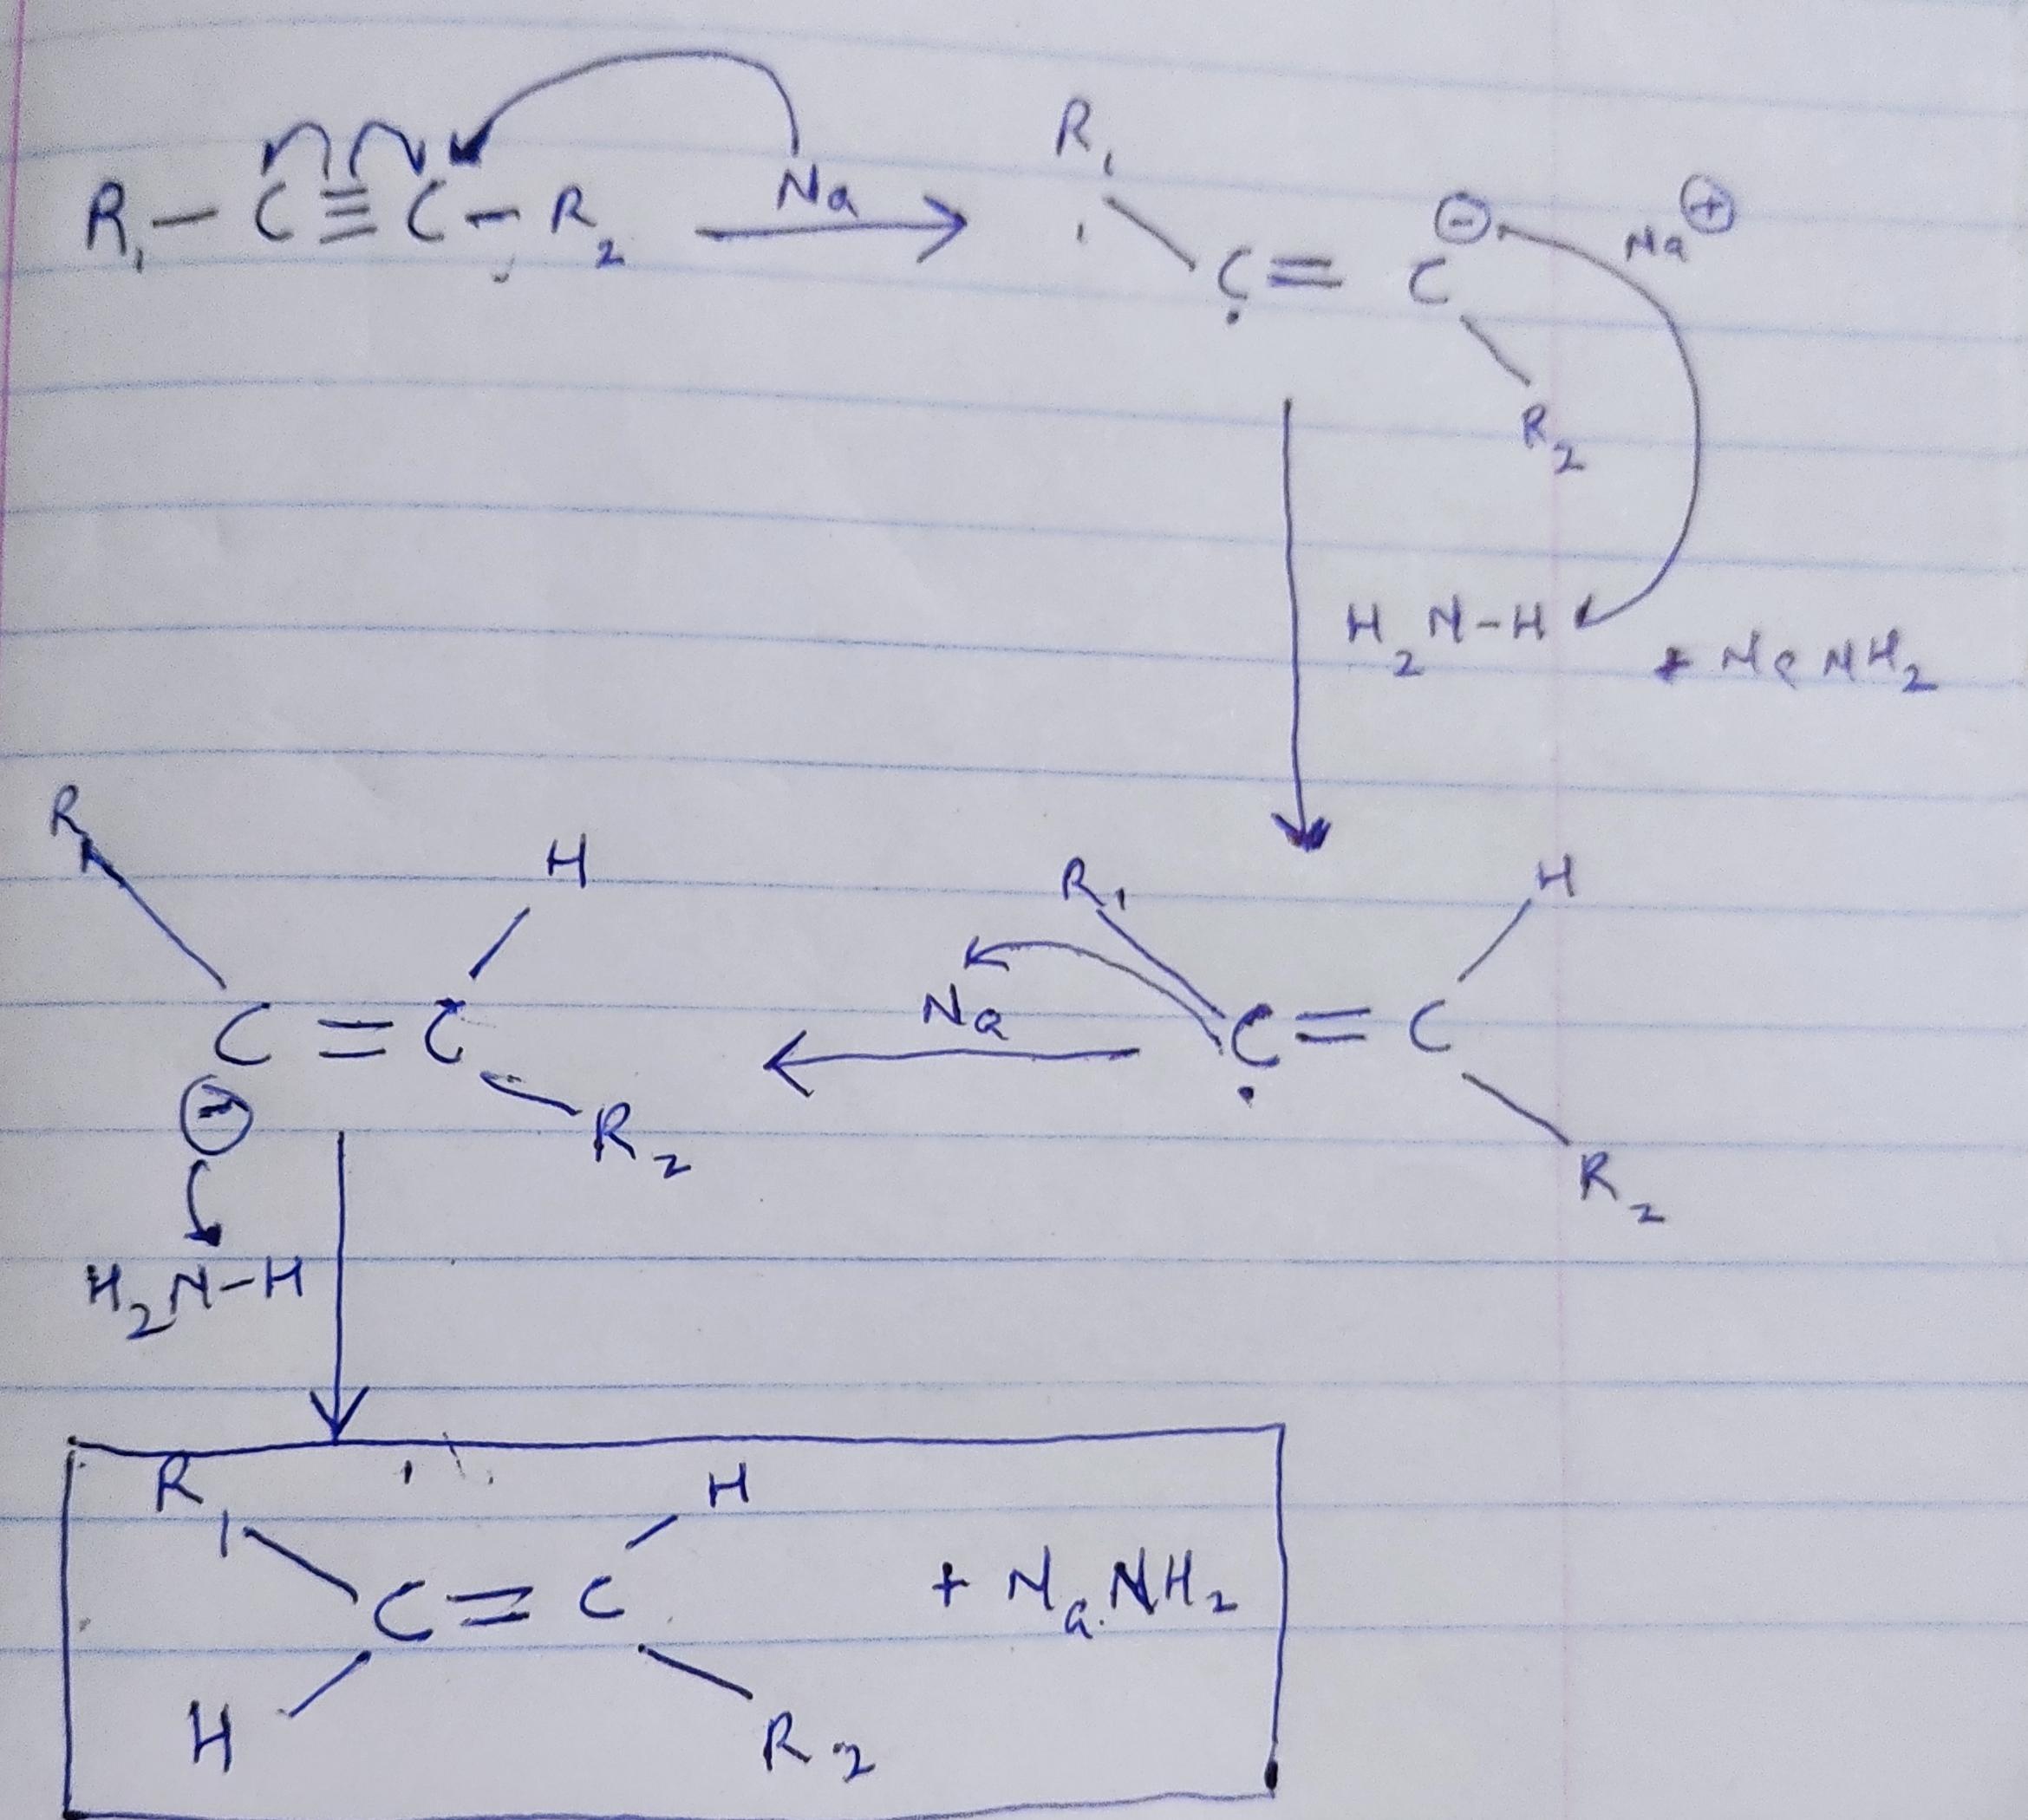 R₁ — C ≡ C — R₂ Na → R₁ C = C ⊖ Na ⊕ R₂
H₂N-H + NaNH₂
R₁ C ⊖ = C H R₂ ← Na R₁ C = C H R₂
H₂N-H
R₁ C = C H + NaNH₂
H R₂